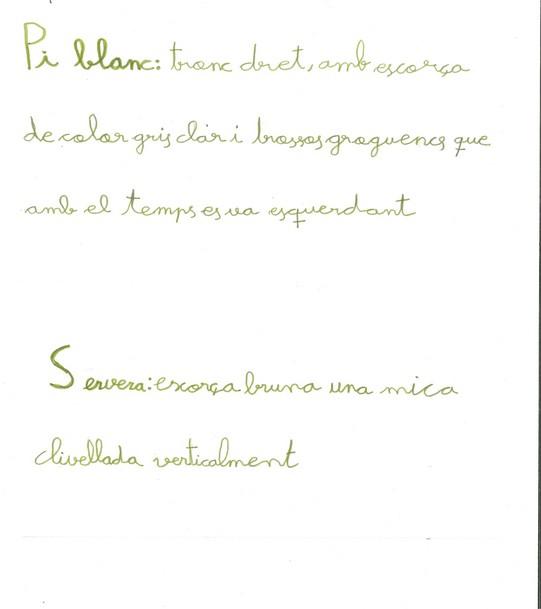 Pi blanc: tronc dret, amb escorça
de color gris clar i brossos groguencs que
amb el temps es va esquerdant
Servera: escorça bruna una mica
clivellada verticalment